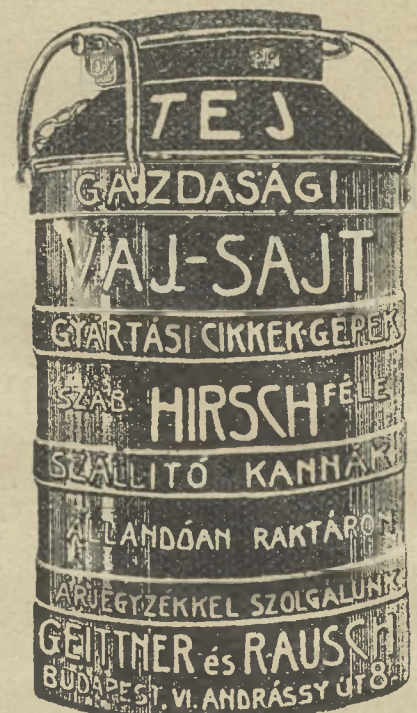 TEJ
GAZDASÁGI
VAJ-SAJT
GYÁRTÁSI CIKKEK-GÉPEK
SZAB. HIRSCH FÉLE
SZÁLLITÓ KANNÁK
ÁLLANDÓAN RAKTÁRON
ÁRJEGYZÉKKEL SZOLGÁLUNK
GEITTNER és RAUSCH
BUDAPEST, VI. ANDRÁSSY ÚT 8.